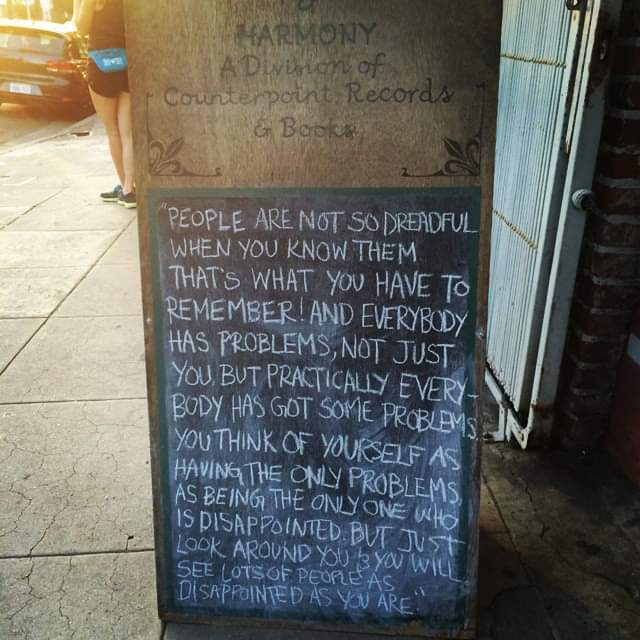 &
HARMONY
A Division of
Counterpoint Records
& Books
"PEOPLE ARE NOT SO DREADFUL
WHEN YOU KNOW THEM.
THAT'S WHAT YOU HAVE TO
REMEMBER! AND EVERYBODY
HAS PROBLEMS, NOT JUST
YOU, BUT PRACTICALLY EVERY-
BODY HAS GOT SOME PROBLEMS.
YOU THINK OF YOURSELF AS
HAVING THE ONLY PROBLEMS,
AS BEING THE ONLY ONE WHO
IS DISAPPOINTED, BUT JUST
LOOK AROUND YOU & YOU WILL
SEE LOTS OF PEOPLE AS
DISAPPOINTED AS YOU ARE."